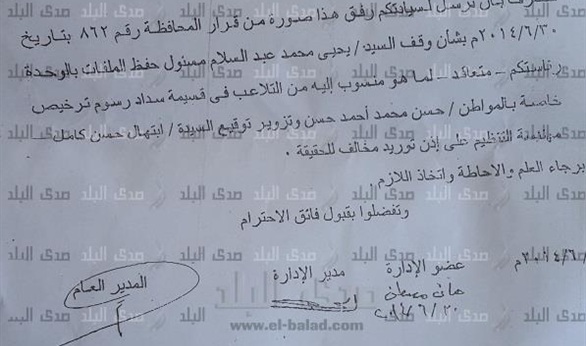 نرسل لسيادتكم رفق هذا صورة من قرار المحافظة رقم ٨٦٢ بتاريخ
٢٠١٤/٦/٣٠م بشأن وقف السيد / يحيى محمد عبد السلام مسئول حفظ الملفات بالوحدة
رئاستكم – متعاقد – لما هو منسوب إليه من التلاعب فى قسيمة سداد رسوم ترخيص
خاصة بالمواطن / حسن محمد أحمد حسن وتزوير توقيع السيدة / ابتهال حسن كامل
التنظيم على إذن توريد مخالف للحقيقة .
برجاء العلم والاحاطة واتخاذ اللازم
وتفضلوا بقبول فائق الاحترام
عضو الإدارة مدير الإدارة المدير العام
صدى البلد
www.el-balad.com